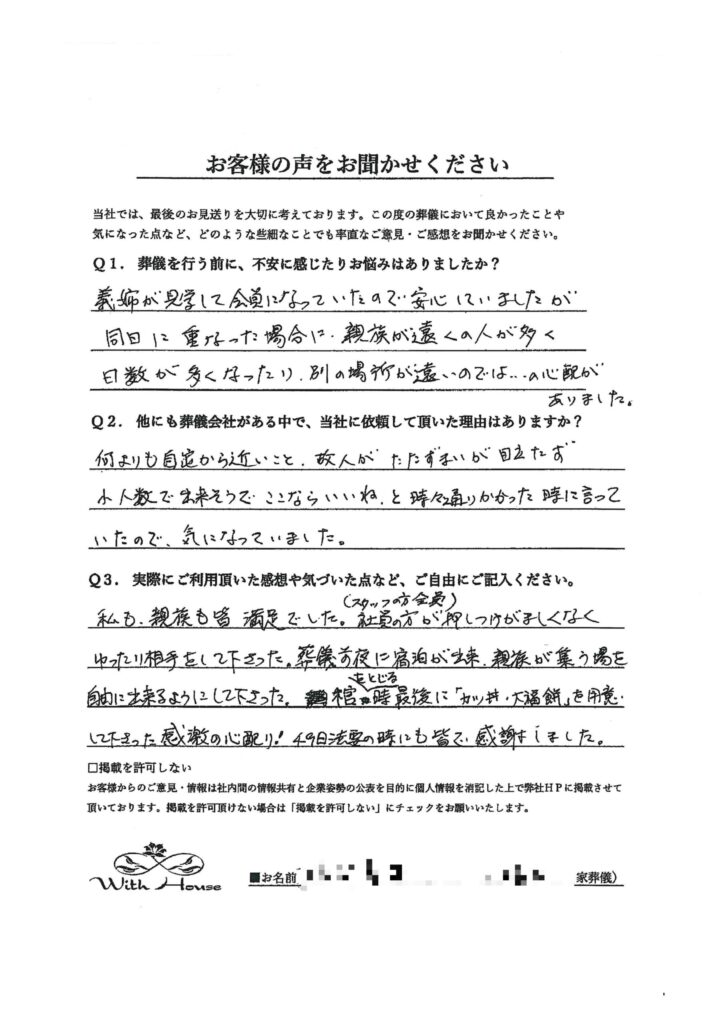 お客様の声をお聞かせください
当社では、最後のお見送りを大切に考えております。この度の葬儀において良かったことや
気になった点など、どのような些細なことでも率直なご意見・ご感想をお聞かせください。
Q1. 葬儀を行う前に、不安に感じたりお悩みはありましたか？
義姉が見学して会員になっていたので安心していましたが
同日に重なった場合に、親族が遠くの人が多く
日数が多くなったり、別の場所が遠いのでは…の心配が
ありました。
Q2. 他にも葬儀会社がある中で、当社に依頼して頂いた理由はありますか？
何よりも自宅から近いこと、故人がたたずまいが目立たず
小人数で出来そうでここならいいね、と時々通りかかった時に言って
いたので、気になっていました。
Q3. 実際にご利用頂いた感想や気づいた点など、ご自由にご記入ください。
（スタッフの方全員）
私も、親族も皆満足でした。社員の方が押しつけがましくなく
ゆったり相手をして下さった。葬儀前夜に宿泊が出来、親族が集う場を
自由に出来るようにして下さった。棺をとじる時最後に「カツ丼・大福餅」を用意
して下さった感激の心配り！49日法要の時にも皆で感謝しました。
□掲載を許可しない
お客様からのご意見・情報は社内間の情報共有と企業姿勢の公表を目的に個人情報を消記した上で弊社HPに掲載させて
頂いております。掲載を許可頂けない場合は「掲載を許可しない」にチェックをお願いいたします。
With House
■お名前（ 家葬儀）